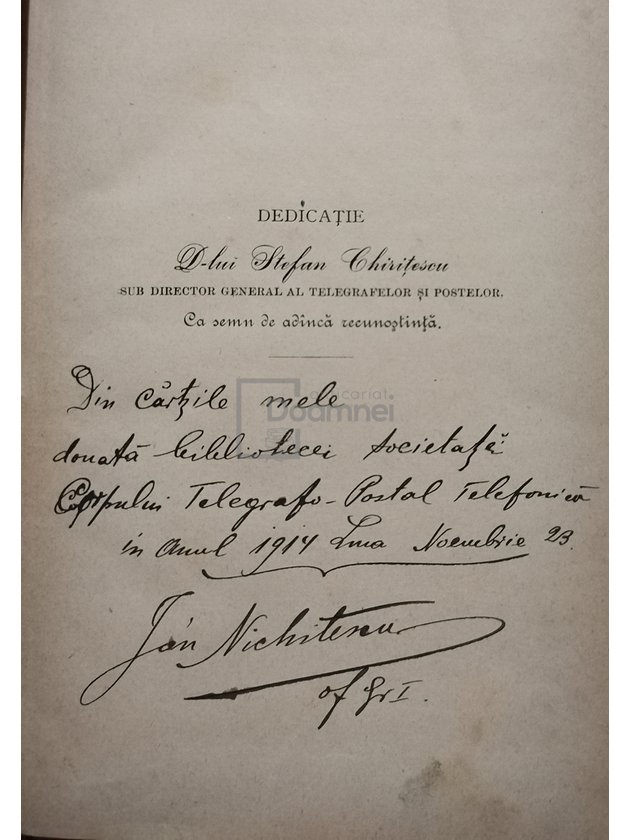 DEDICAȚIE
D-lui Stefan Chirițescu
SUB DIRECTOR GENERAL AL TELEGRAFELOR ȘI POSTELOR.
Ca semn de adîncă recunoștință.
Din cărțile mele
donată bibliotecei societată
Corpului Telegrafo-Postal Telefonică
in anul 1914 Luna Noembrie 23.
Ján Nichitescu
of gr I.
anticariat
Doamnei